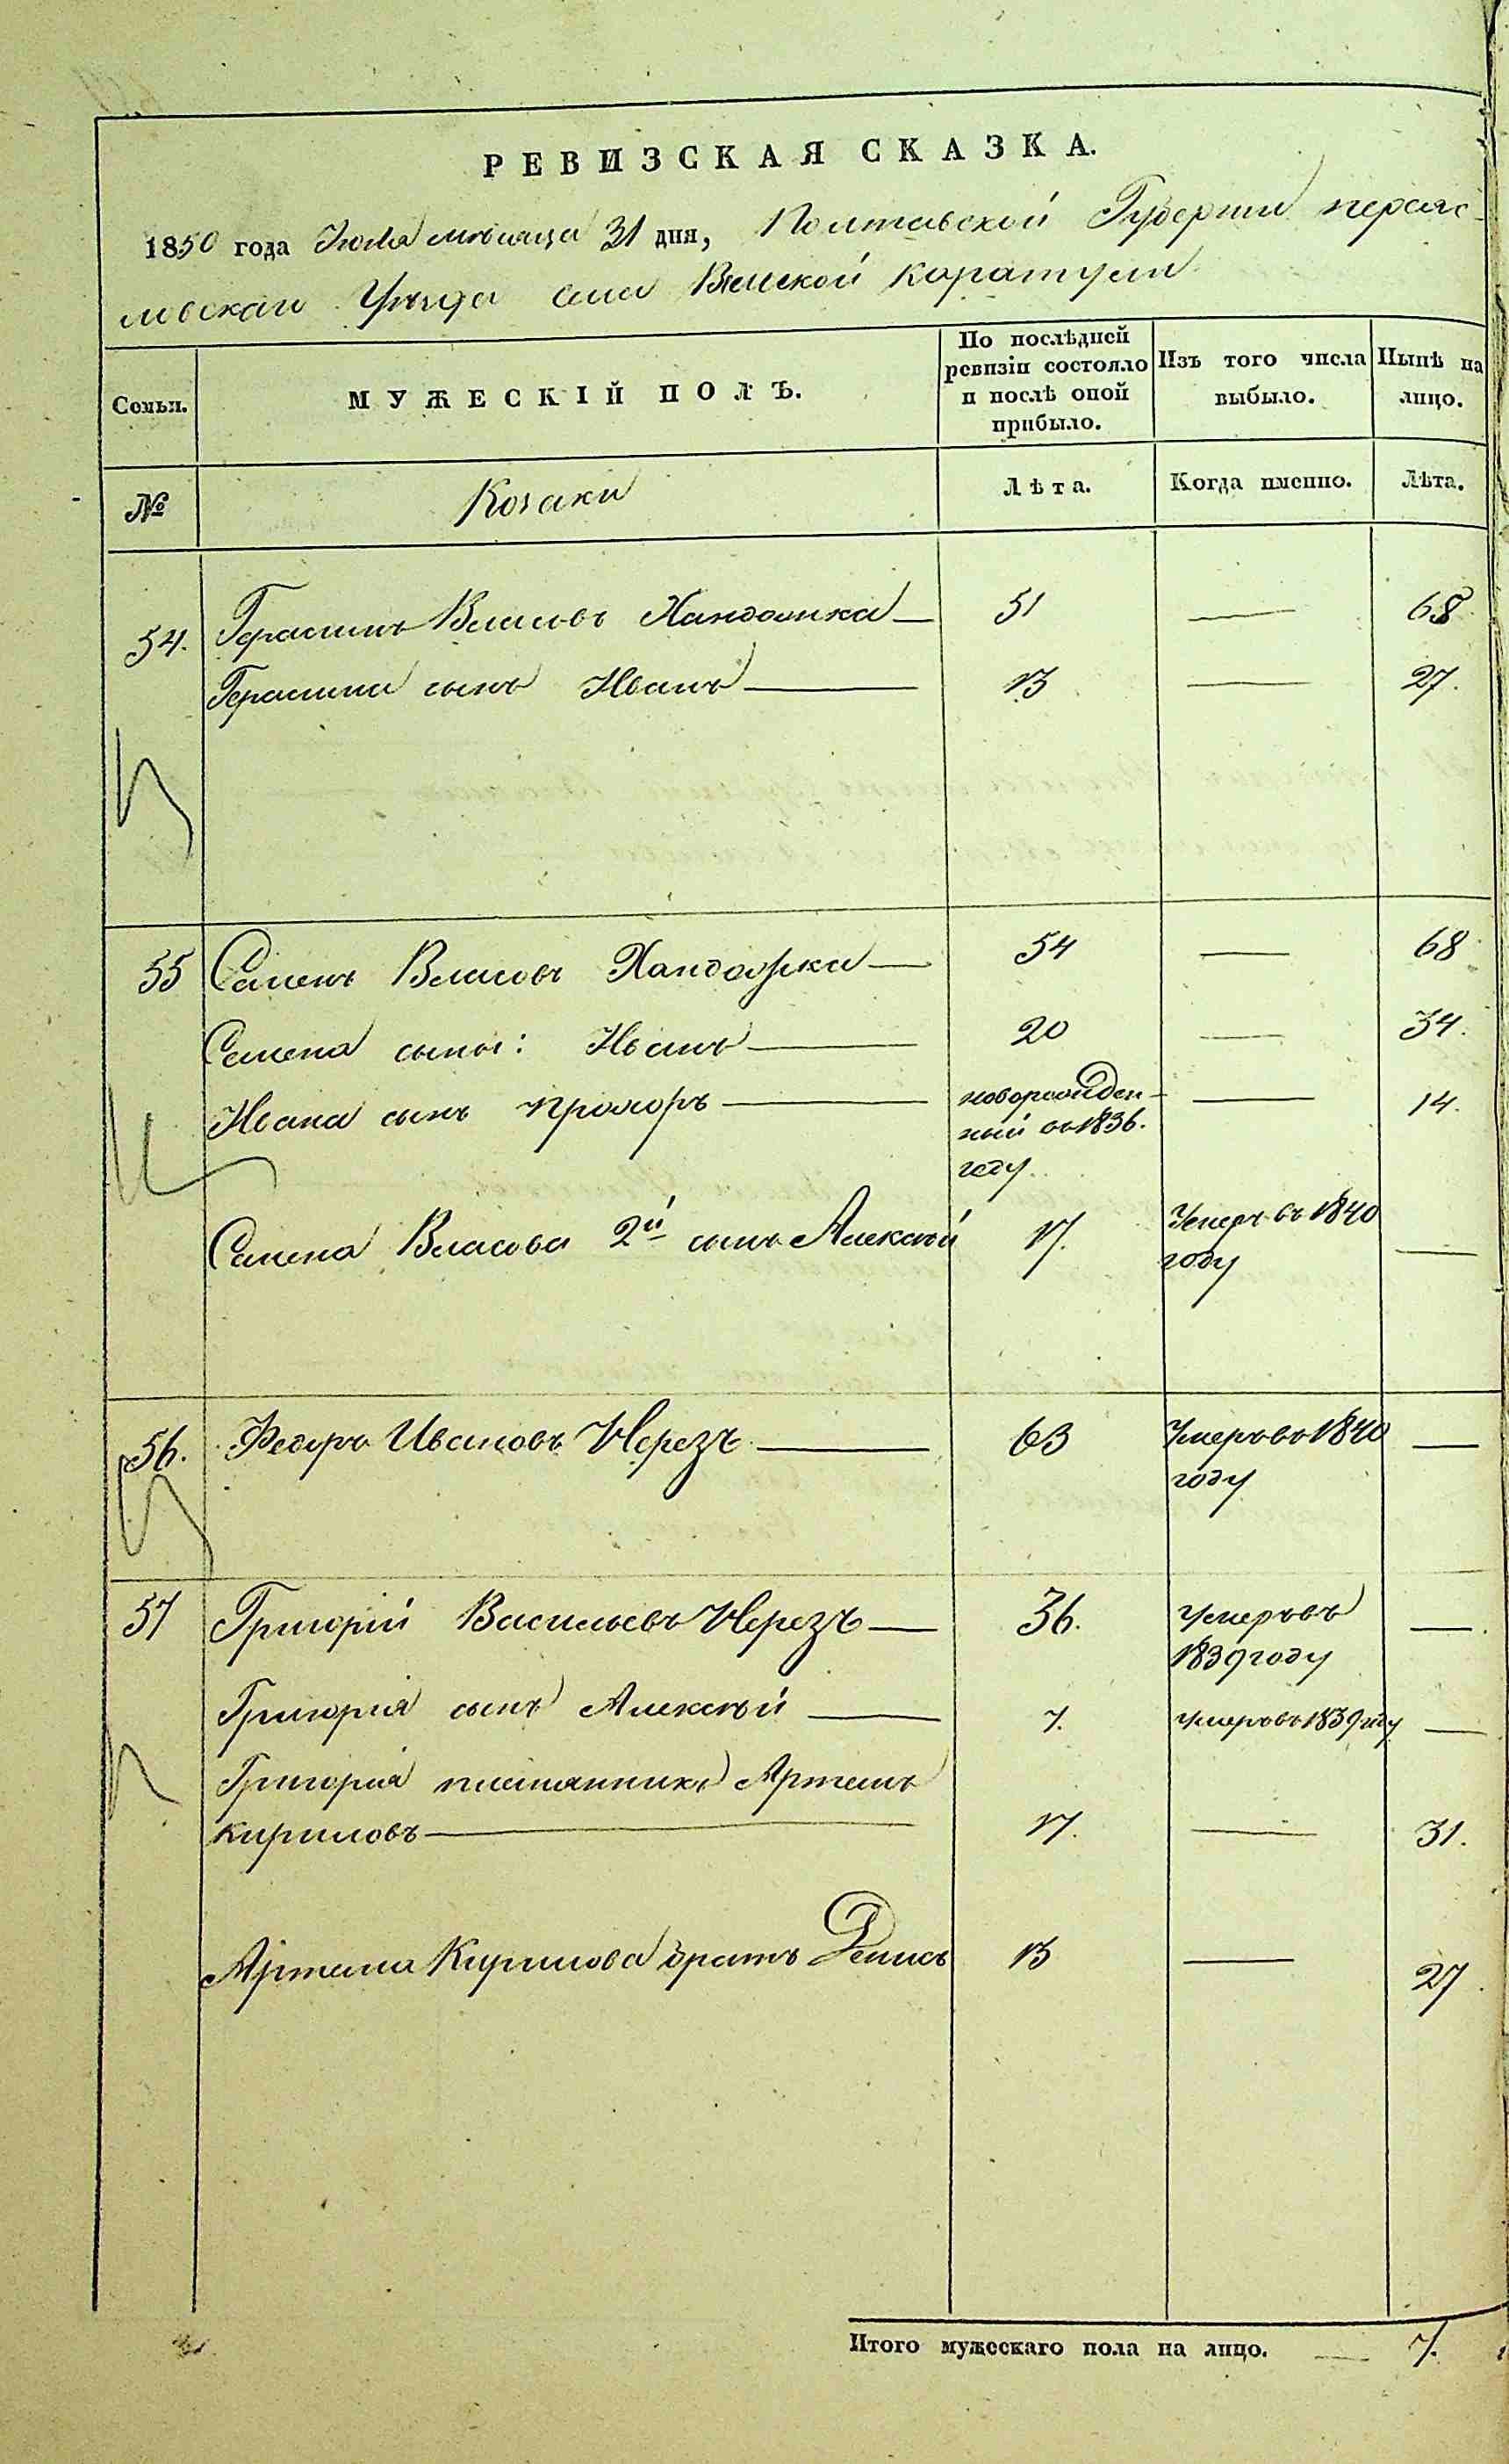 РЕВИЗСКАЯ СКАЗКА.
1850 года Июля мѣсяца 31 дня, Полтавской Губерніи переяс-
ловскаго Уѣзда села Вели́кой Каратули
Семьи. МУЖЕСКІЙ ПОЛЪ. По послѣдней ревизіи состояло и послѣ оной прибыло. Изъ того числа выбыло. Нынѣ на лицо.
№ Козаки Лѣта. Когда именно. Лѣта.
54. Герасимъ Власовъ 51 — 68
Герасима сынъ Иванъ — 13 — 27.
55 Семенъ Власовъ — 54 — 68
Семена сыны: Иванъ — 20 — 34.
Ивана сынъ Прохоръ — новорожден-
ный въ 1836.
году — 14.
Семена Власова 2й сынъ Алексѣй 17. Умеръ въ 1840
году —
56. Федоръ Ивановъ Черезъ — 63 Умеръ въ 1840
году —
57 Григорій Васильевъ Черезъ — 36. Умеръ въ
1839 году —
Григорія сынъ Алексѣй — 7. Умеръ въ 1839 году —
Григорія племянникъ Артемъ
Кириловъ — 17. — 31.
Артема Кирилова братъ Денисъ 13 — 27
Итого мужескаго пола на лицо. — 7.